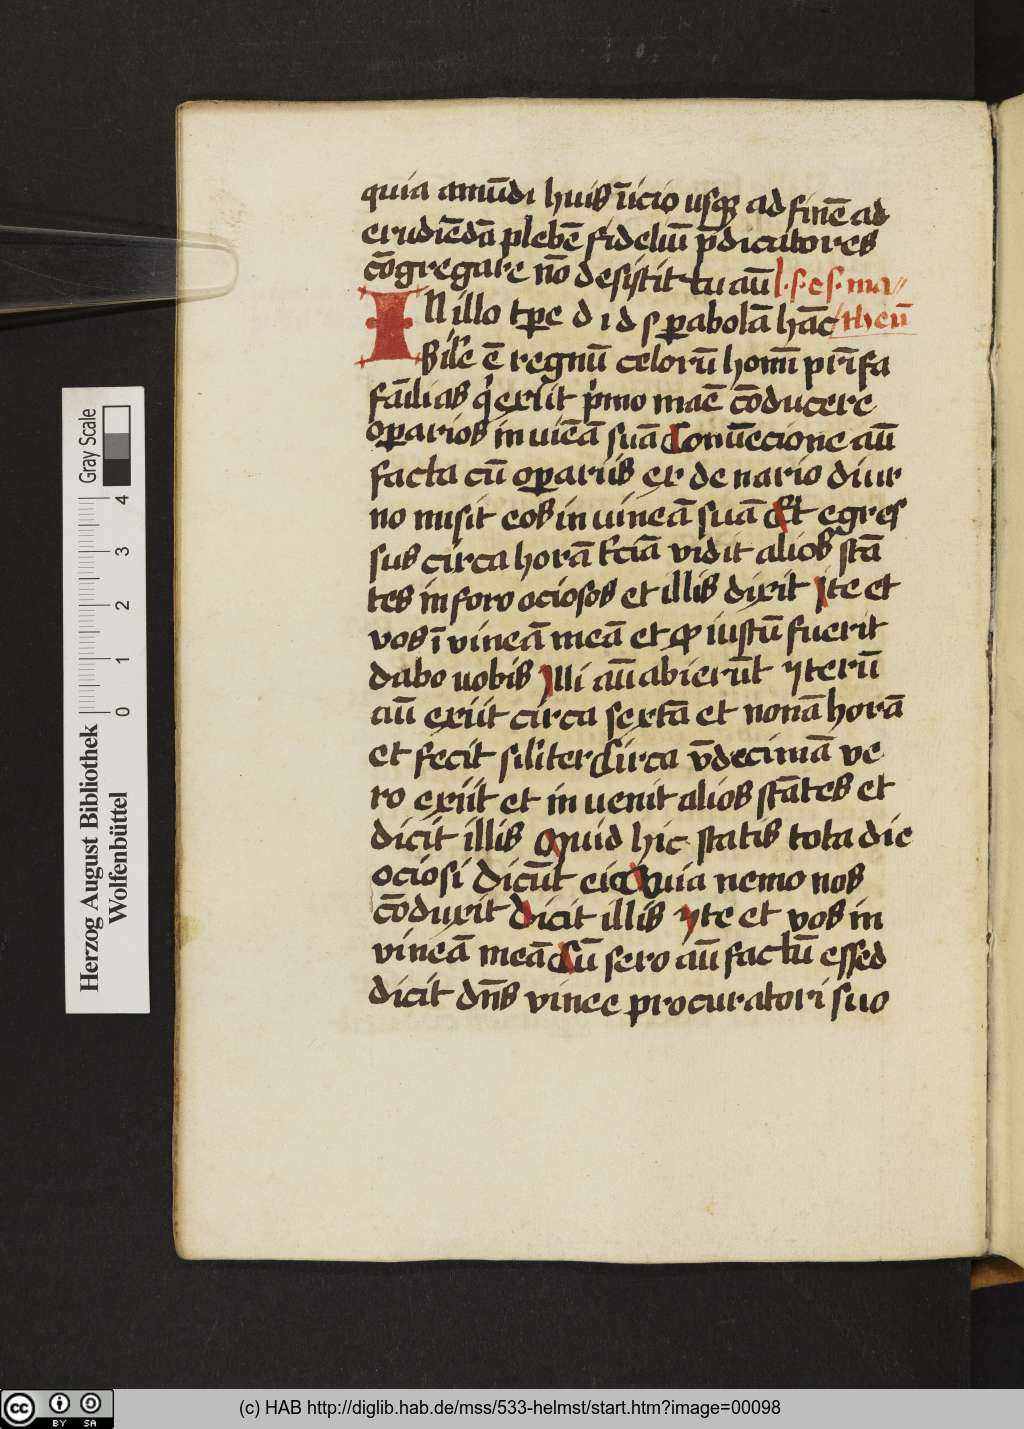 quia amūdi huiꝰ īicio usqꝫ ad finē ad
erudiēdā plebē fideliū p̄dicatores
cōgregare nō desistit tu aū l. s. es. ma
In illo tp̄e d i d s ꝑabolā hāc theū
Sil̄e ē regnū celorū homī pr̄ifa
fāilias q̇ exiit ṗmo maē cōducere
oꝑarios in uieā suā Conūecione aū
facta cū oꝑariis ex denario diur
no misit eos in uineā suā Et egres
sus circa horā t̄ciā vidit alios stā
tes in foro ociosos et illis dixit ite et
vos ī vineā meā et qd̄ iustū fuerit
dabo uobis Illi aū abierūt yterū
aū exiit circa sextā et nonā horā
et fecit sil̄iter Circa v̄decimā ve
ro exiit et in uenit alios stātes et
dicit illis Quid hic statis tota die
ociosi dicūt ei Quia nemo nos
cōduxit Dicit illis yte et vos in
vineā meā Cū sero aū factū essꝫ
dicit dn̄s vinee procuratori suo
Gray Scale
4
3
2
1
0
Herzog August Bibliothek
Wolfenbüttel
cc BY SA
(c) HAB http://diglib.hab.de/mss/533-helmst/start.htm?image=00098